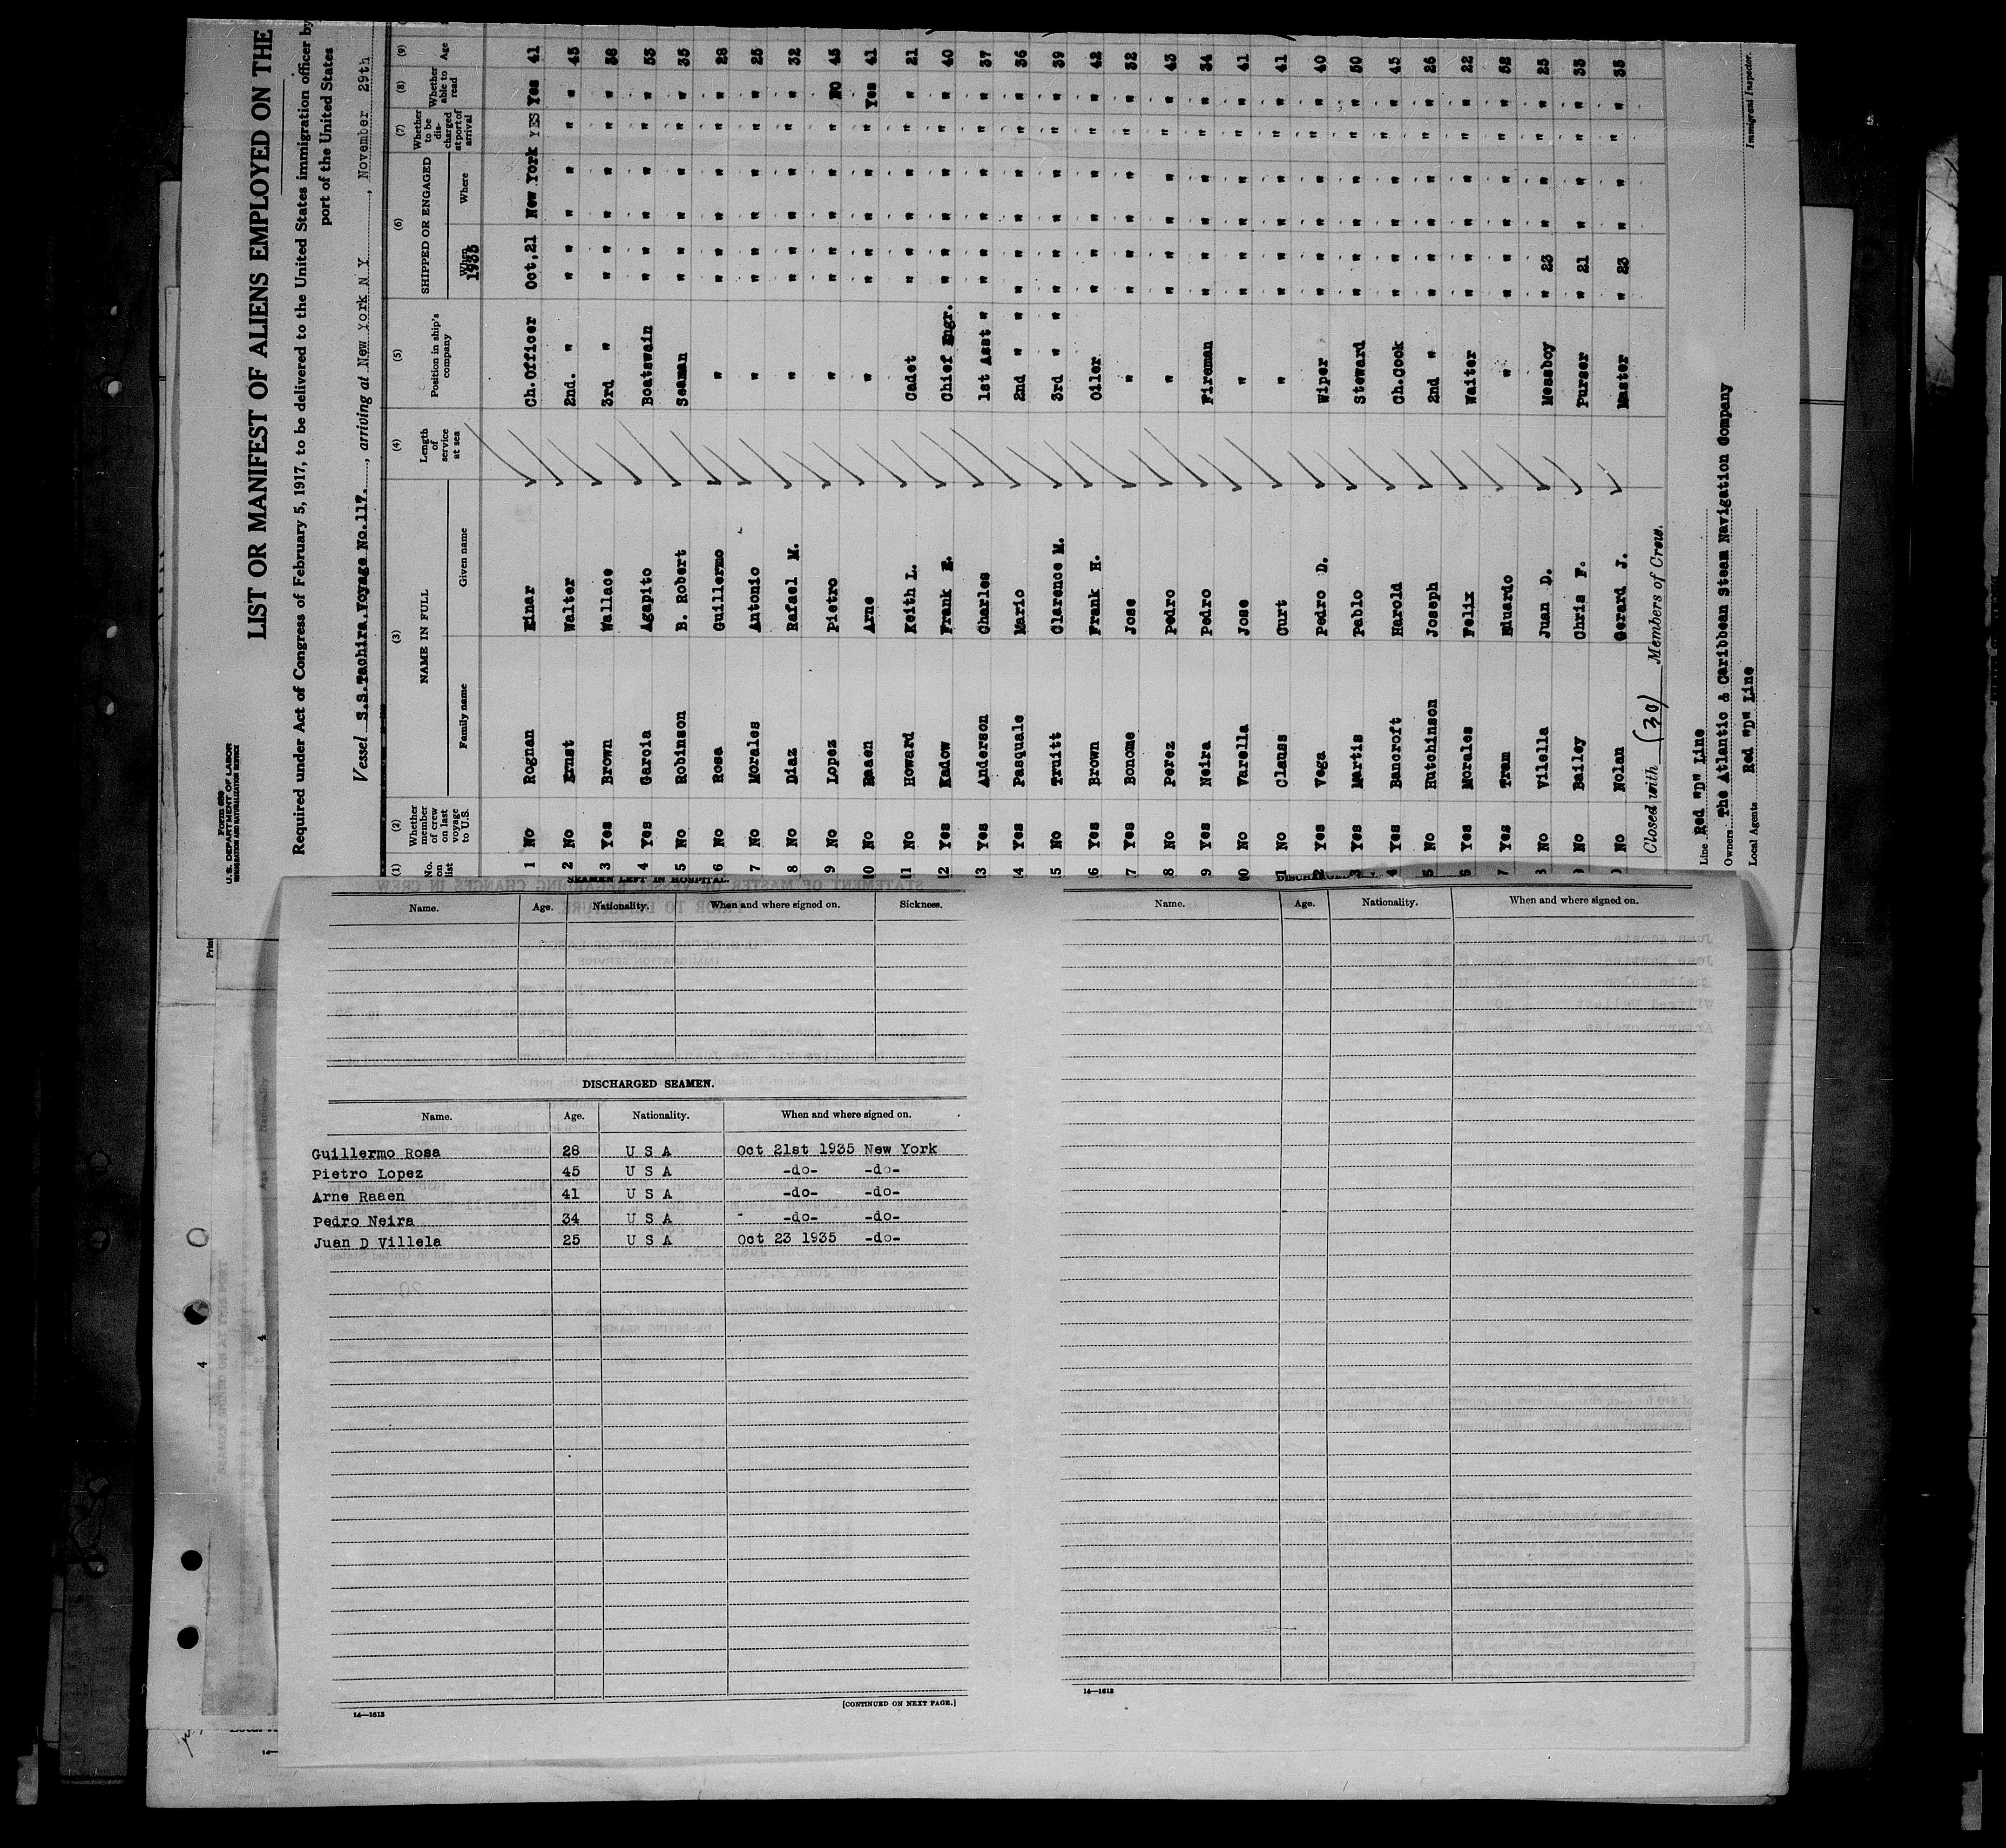 Form 689
U. S. DEPARTMENT OF LABOR
IMMIGRATION AND NATURALIZATION SERVICE
LIST OR MANIFEST OF ALIENS EMPLOYED ON THE
Required under Act of Congress of February 5, 1917, to be delivered to the United States immigration officer by
port of the United States
Vessel S.S.Tachira.Voyage No.117. , arriving at New York N Y , November 29th
(1) (2) (3) (4) (5) (6) (7) (8) (9)
No. on list Whether member of crew on last voyage to U.S. NAME IN FULL Family name Given name Length of service at sea Position in ship's company SHIPPED OR ENGAGED When 1935 Where Whether to be discharged at port of arrival Whether able to read Age
1 No Rognan Einar Ch.Officer Oct,21 New York YES Yes 41
2 No Ernst Walter 2nd. " " " " " " " 45
3 Yes Brown Wallace 3rd " " " " " " " 38
4 Yes Garcia Agapito Boatswain " " " " " " 53
5 No Robinson B. Robert Seaman " " " " " " 35
6 No Rosa Guillermo " " " " " " " 28
7 No Morales Antonio " " " " " " " 25
8 No Diaz Rafael M. " " " " " " " 32
9 No Lopez Pietro " " " " " " NO 45
10 No Raaen Arne " " " " " " Yes 41
11 No Howard Keith L. Cadet " " " " " " 21
12 Yes Kadow Frank E. Chief Engr. " " " " " " 40
13 Yes Anderson Charles 1st Asst " " " " " " " 37
14 Yes Pasquale Mario 2nd " " " " " " " " 36
15 No Truitt Clarence M. 3rd " " " " " " " " 39
16 Yes Brown Frank H. Oiler " " " " " " 42
17 Yes Bonome Jose " " " " " " " 32
18 No Perez Pedro " " " " " " " 43
19 Yes Neira Pedro Fireman " " " " " " 34
20 No Varella Jose " " " " " " " 41
21 No Clauss Curt " " " " " " " 41
22 Yes Vega Pedro D. Wiper " " " " " " 40
23 Yes Martis Pablo Steward " " " " " " 50
24 Yes Bancroft Harold Ch.Cook " " " " " " 45
25 No Hutchinson Joseph 2nd " " " " " " " 26
26 Yes Morales Felix Waiter " " " " " " 22
27 Yes Tram Eduardo " " " " " " " 52
28 No Vilella Juan D. Messboy " 23 " " " " 25
29 No Bailey Chris F. Purser " 21 " " " " 33
30 No Nolan Gerard J. Master " 23 " " " " 35
Closed with (30) Members of Crew.
Line Red "D" Line
Owners The Atlantic & Caribbean Steam Navigation Company
Local Agents Red "D" Line
Immigrant Inspector.
SEAMEN LEFT IN HOSPITAL.
Name. Age. Nationality. When and where signed on. Sickness.
DISCHARGED SEAMEN.
Name. Age. Nationality. When and where signed on.
Guillermo Rosa 28 U S A Oct 21st 1935 New York
Pietro Lopez 45 U S A -do- -do-
Arne Raaen 41 U S A -do- -do-
Pedro Neira 34 U S A -do- -do-
Juan D Villela 25 U S A Oct 23 1935 -do-
[CONTINUED ON NEXT PAGE.]
14—1613
Name. Age. Nationality. When and where signed on.
14—1613